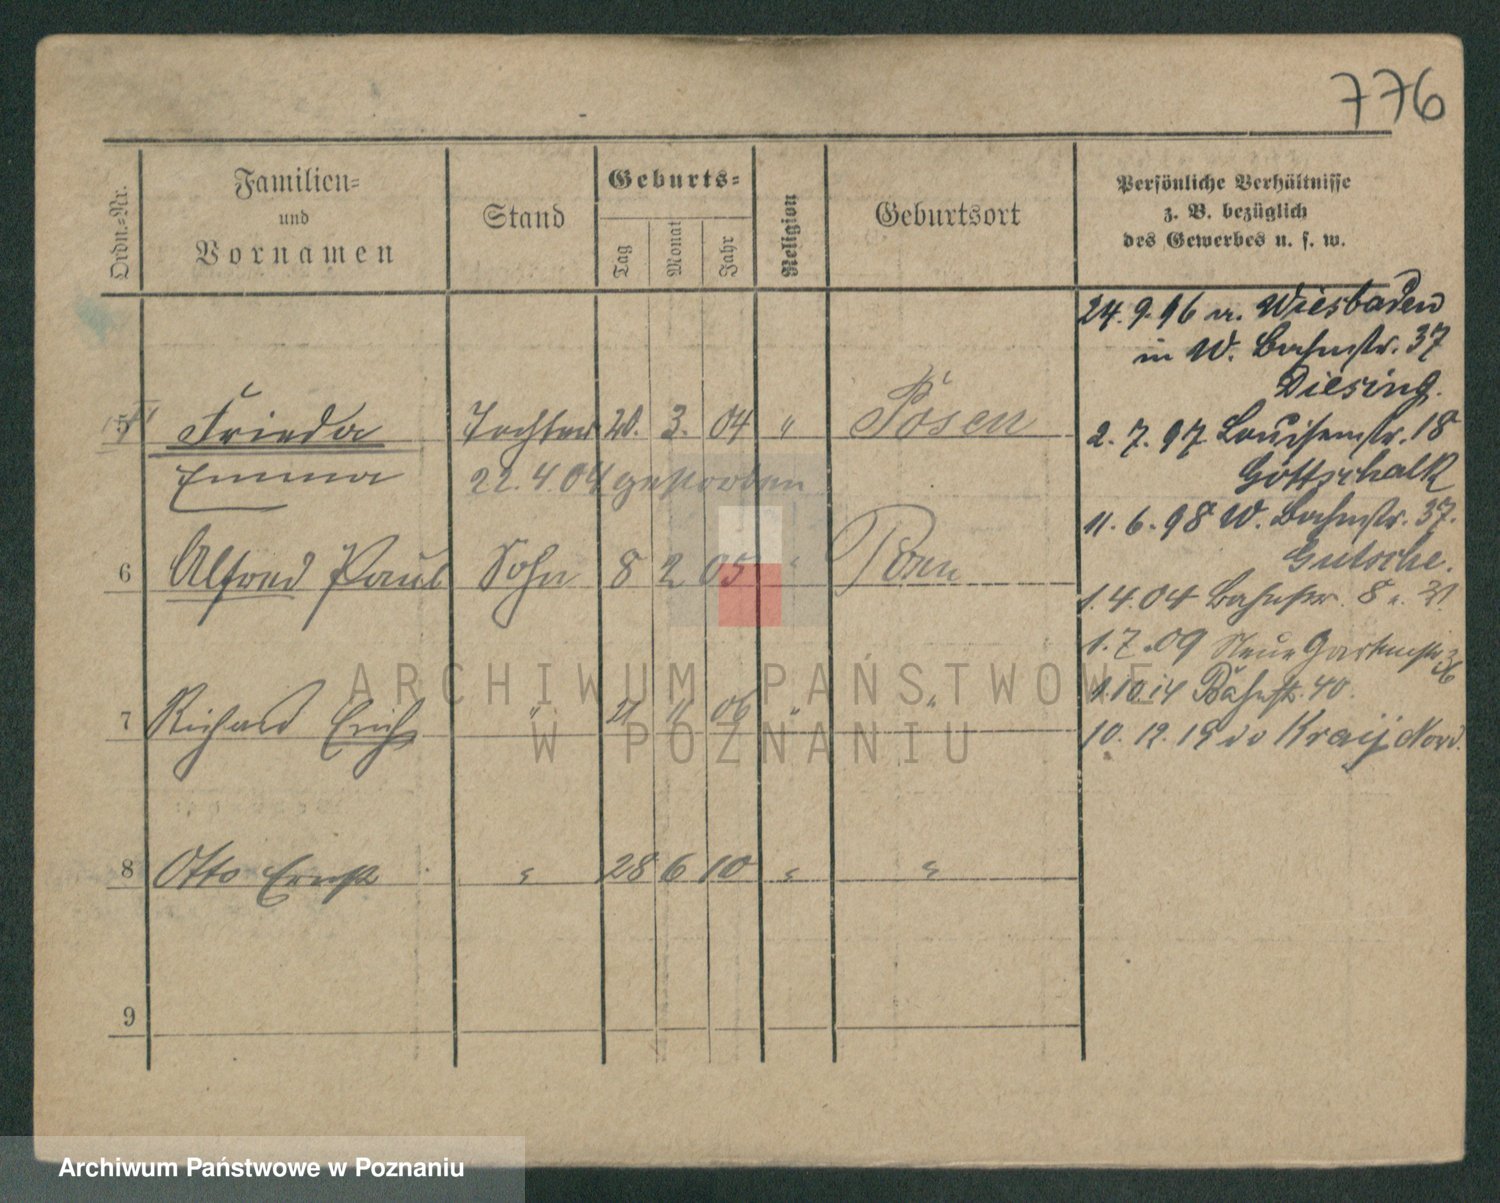 776
Ordn.-Nr.
Familien-
und
Vornamen
Stand
Geburts-
Tag
Monat
Jahr
Religion
Geburtsort
Persönliche Verhältnisse
z. B. bezüglich
des Gewerbes u. s. w.
24. 9. 96 n. Wiesbaden
in W. Bahnstr. 37
Diesing.
5 Frieda Tochter 20. 3. 04 " Posen
2. 7. 97 Louisenstr. 18
Gottschalk
Emma 22. 4. 04 gestorben
11. 6. 98 W. Bahnstr. 37.
Gutsche.
6 Alfred Paul Sohn 8 2 05 " Posen
1. 4. 04 Bahnstr. 8
1. 7. 09 Neue Gartenstr.
1. 10. 14 Bahnstr. 40.
7 Richard Erich " 11 06 " "
10. 12. 19
8 Otto Ernst " 28 6 10 " "
9
ARCHIWUM PAŃSTWOWE
W POZNANIU
Archiwum Państwowe w Poznaniu